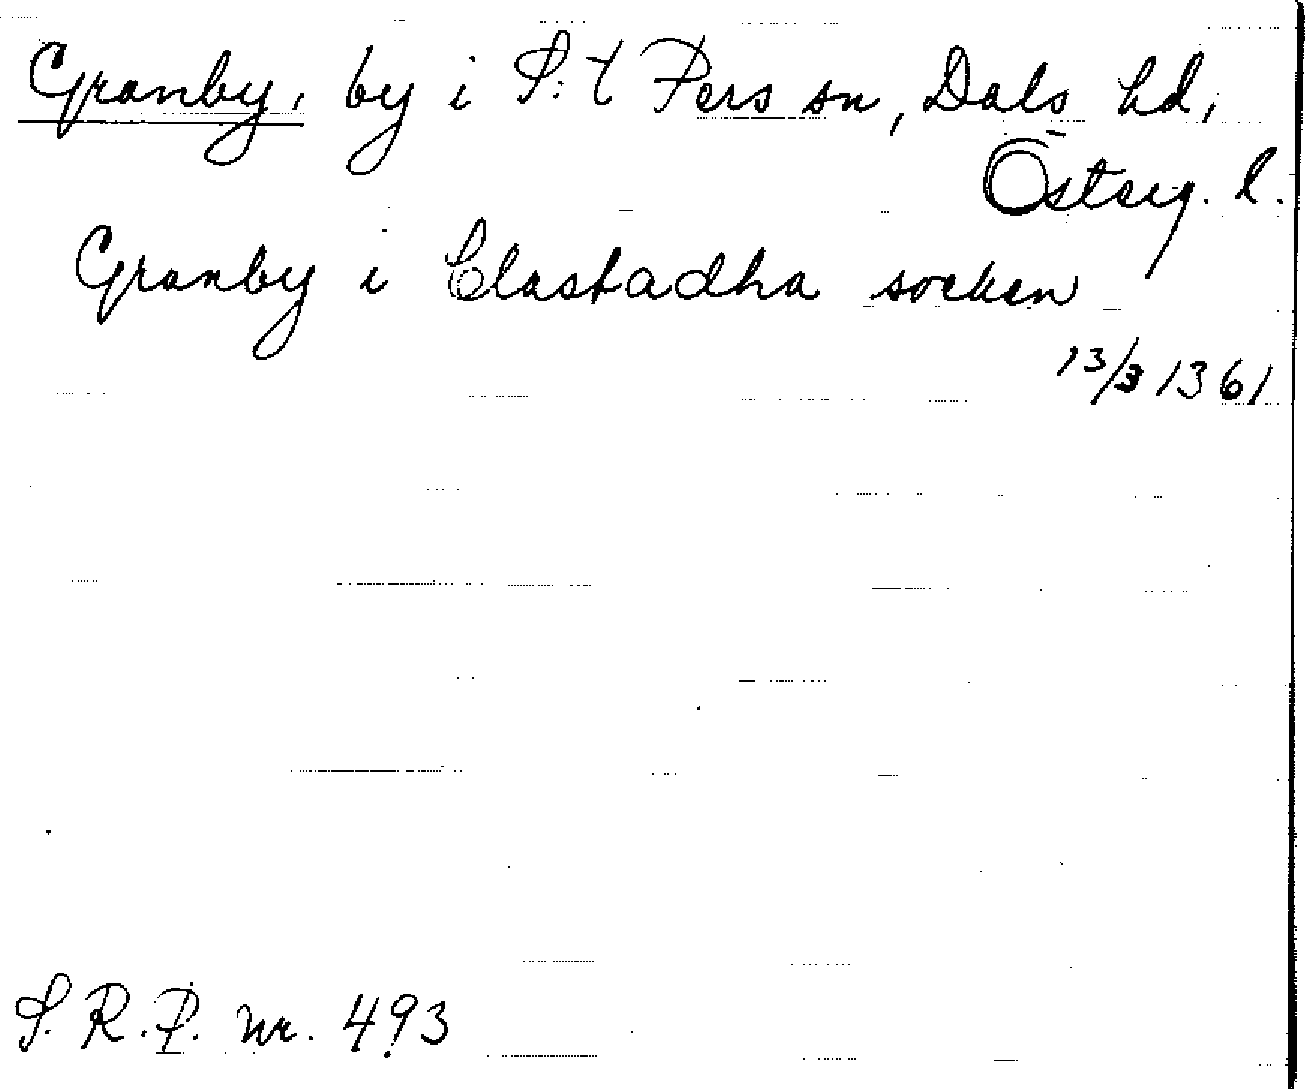 Granby, by i S:t Pers sn, Dals hd,
Österg. l.
Granby i Clastadha socken
13/3 1361
S.R.P. nr. 493